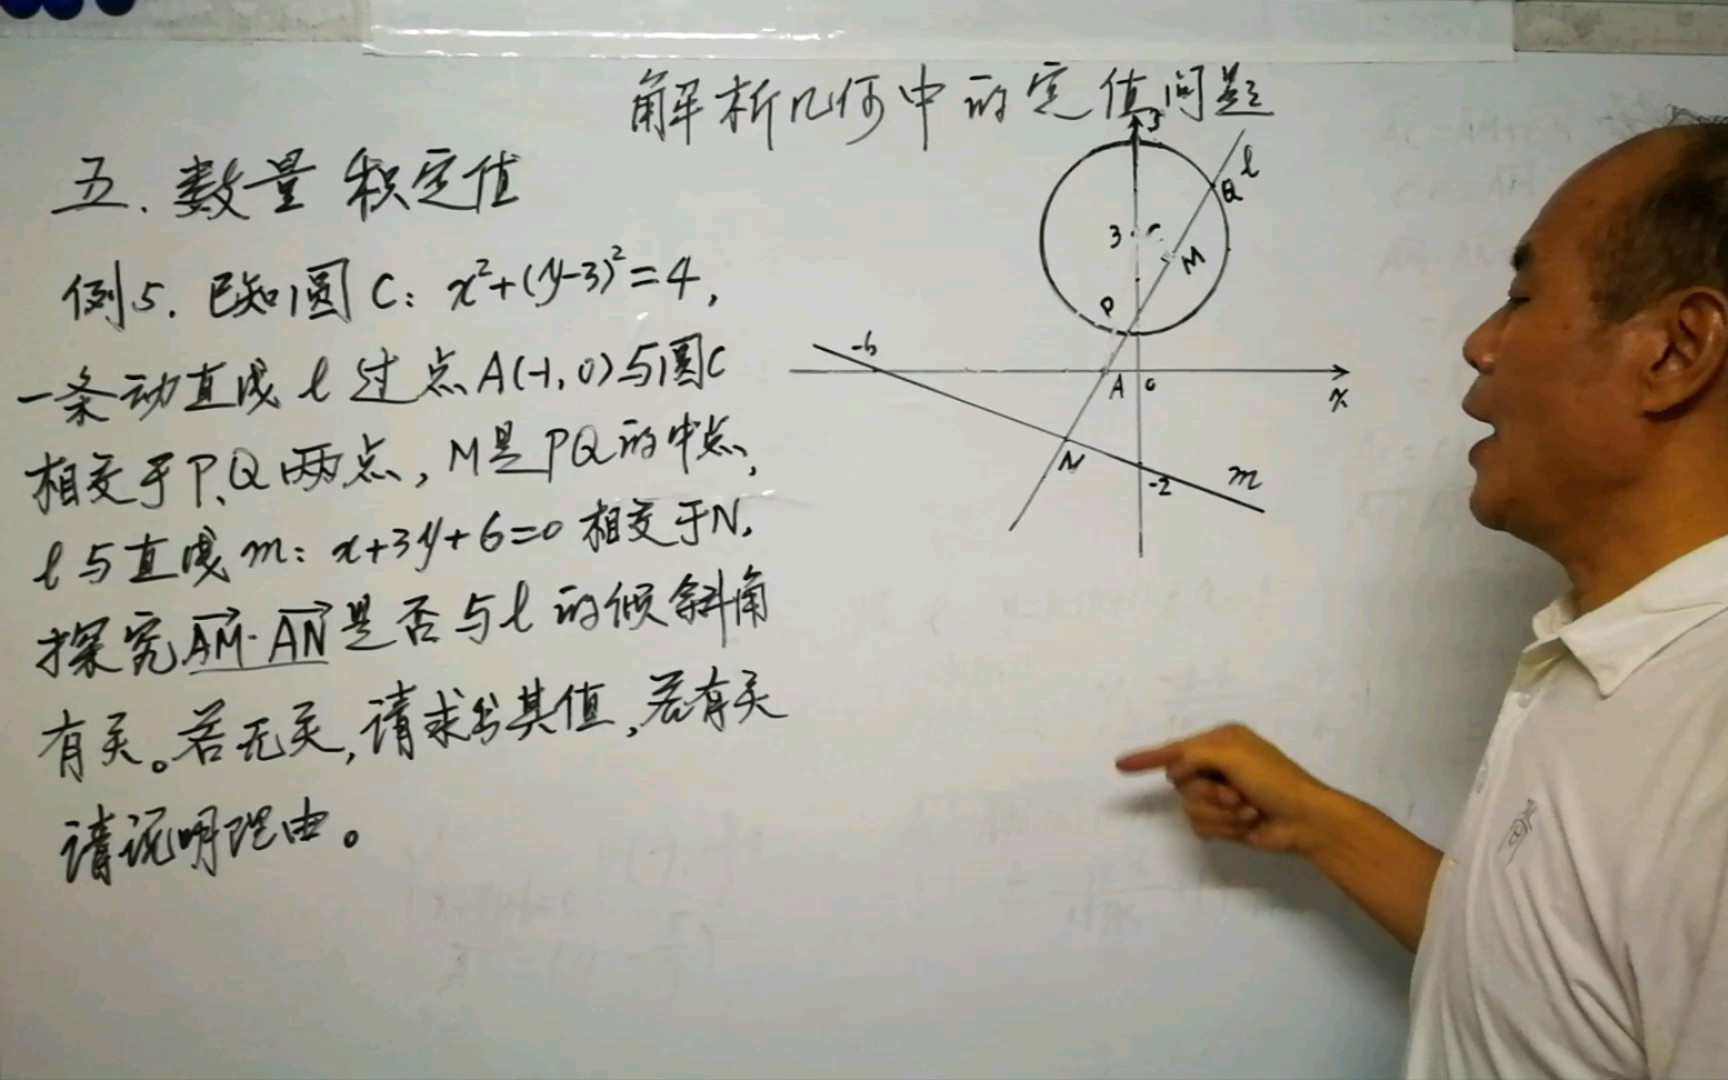 解析几何中的定值问题
五. 数量积定值
例5. 已知圆C: x²+(y-3)²=4,
一条动直线 l 过点A(-1,0)与圆C
相交于P、Q两点, M是PQ的中点,
l与直线m: x+3y+6=0相交于N,
探究AM·AN是否与l的倾斜角
有关。若无关, 请求出其值, 若有关
请说明理由。
l
Q
3 C
M
P
-6
A 0
x
N
-2 m